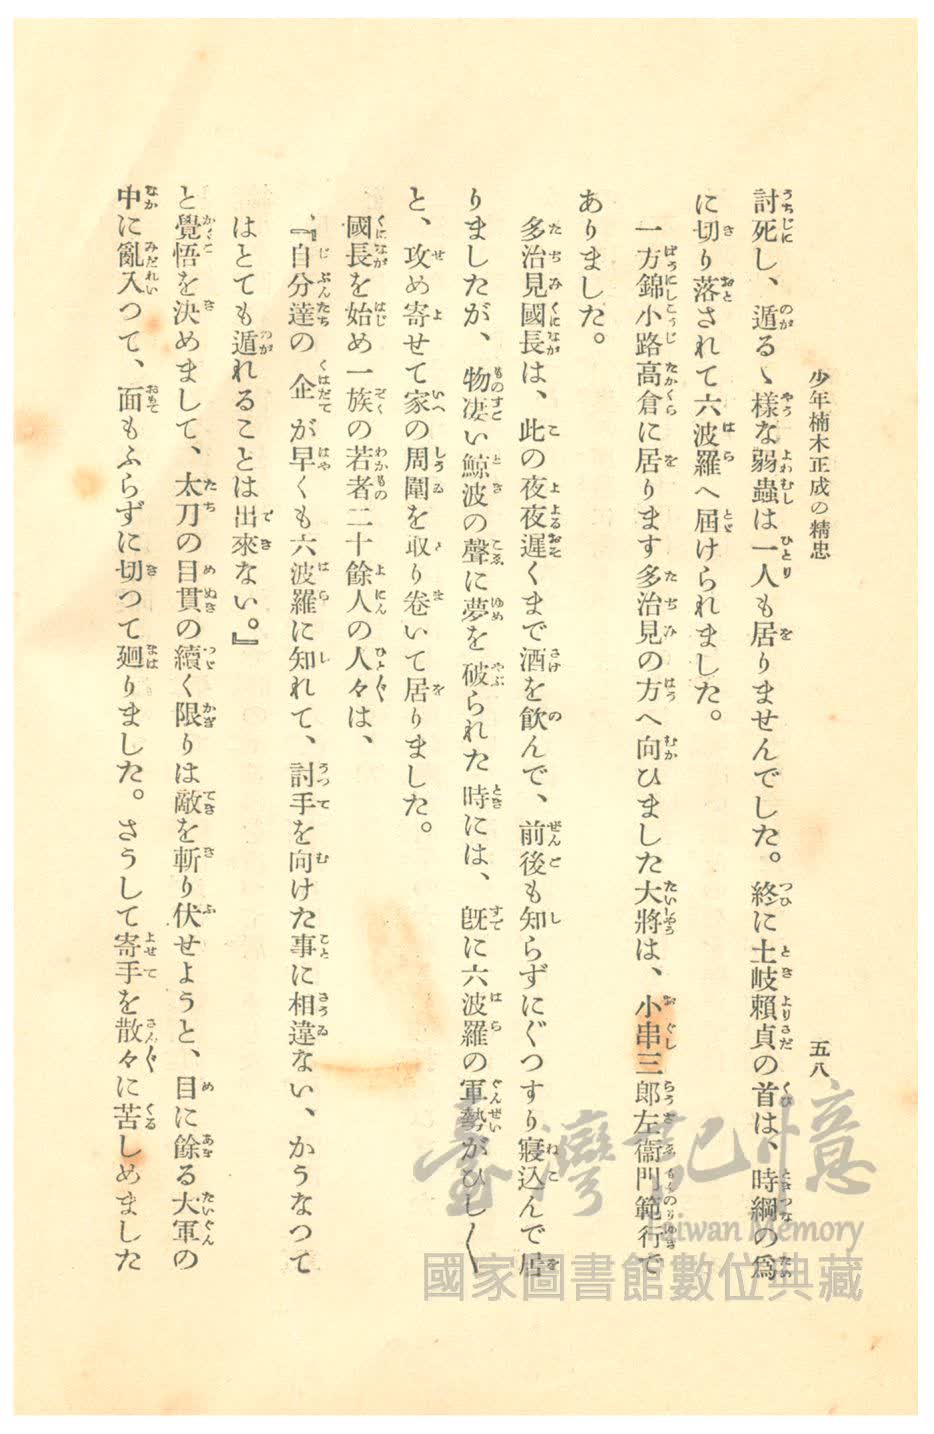 少年楠木正成の精忠
五八
討死し、遁るゝ樣な弱蟲は一人も居りませんでした。終に土岐賴貞の首は、時綱の爲
に切り落されて六波羅へ屆けられました。
一方錦小路高倉に居ります多治見の方へ向ひました大將は、小串三郎左衞門範行で
ありました。
多治見國長は、此の夜夜遲くまで酒を飮んで、前後も知らずにぐつすり寢込んで居
りましたが、物凄い鯨波の聲に夢を破られた時には、旣に六波羅の軍勢がひし〱
と、攻め寄せて家の周圍を取り卷いて居りました。
國長を始め一族の若者二十餘人の人々は、
『自分達の企が早くも六波羅に知れて、討手を向けた事に相違ない、かうなつて
はとても遁れることは出來ない。』
と覺悟を決めまして、太刀の目貫の續く限りは敵を斬り伏せようと、目に餘る大軍の
中に亂入つて、面もふらずに切つて廻りました。さうして寄手を散々に苦しめました
臺灣記憶
Taiwan Memory
國家圖書館數位典藏